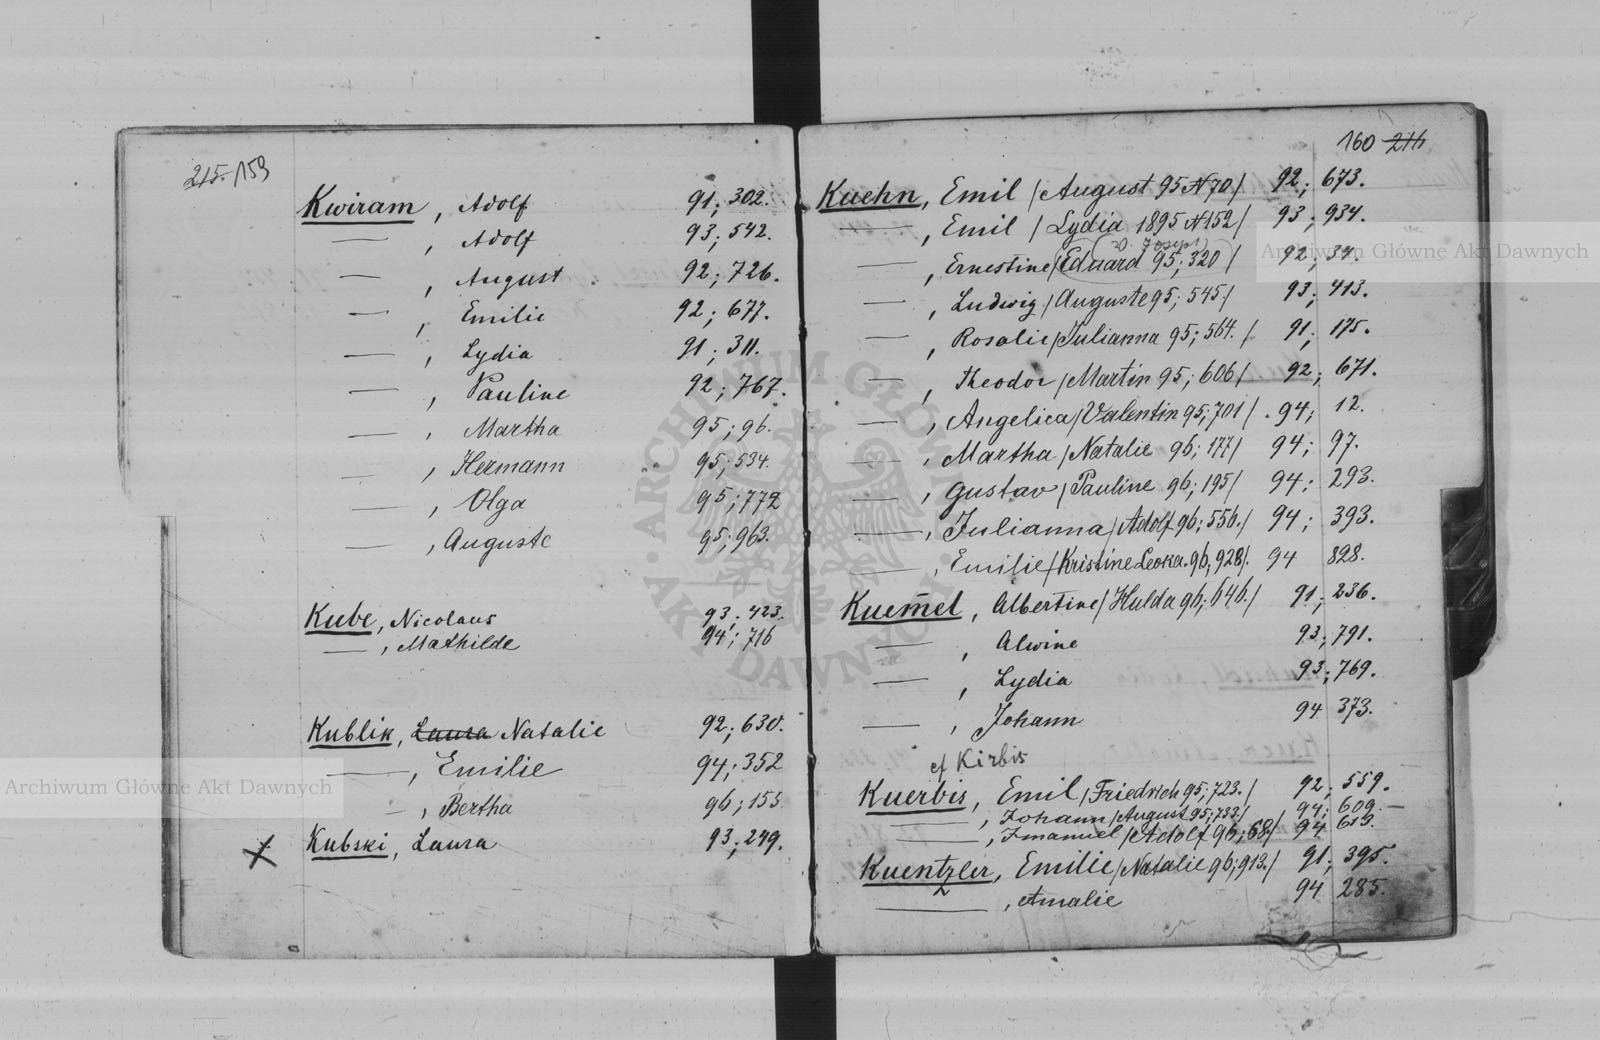 215. 159
Kwiram, Adolf 91; 302.
—, Adolf 93; 542.
—, August 92; 726.
—, Emilie 92; 677.
—, Lydia 91; 311.
—, Pauline 92; 767.
—, Martha 95; 96.
—, Hermann 95; 534.
—, Olga 95; 772
—, Auguste 95; 963.
Kube, Nicolaus 93; 423.
—, Mathilde 94; 716
Kublik, Laura Natalie 92; 630.
—, Emilie 94; 352
—, Bertha 96; 155
Kubski, Laura 93; 249.
160 216
Kuehn, Emil /August 95 N 70/ 92; 673.
—, Emil /Lydia 1895 N 152/ 93; 934.
v. Joseph
—, Ernestine /Eduard 95; 320/ 92; 34.
—, Ludwig /Auguste 95; 545/ 93; 413.
—, Rosalie /Julianna 95; 564./ 91; 175.
—, Theodor /Martin 95; 606/ 92; 671.
—, Angelica /Valentin 95; 701/ 94; 12.
—, Martha /Natalie 96; 177/ 94; 97.
—, Gustav /Pauline 96; 195/ 94; 293.
—, Julianna /Adolf 96; 556./ 94; 393.
—, Emilie /Kristine Leoka. 96; 928/. 94 828.
Kuem̅el, Albertine /Hulda 96; 646./ 91; 236.
—, Alwine 93; 791.
—, Lydia 93; 769.
—, Johann 94 373.
cf Kirbis
Kuerbis, Emil /Friedrich 95; 723./ 92; 559.
—, Johann /August 95; 733/ 94; 609. —
—, Imanuel /Adolf 96; 68/ 94 613.
Kuentzler, Emilie /Natalie 96; 913./ 91; 395.
—, Amalie 94 285.
Archiwum Główne Akt Dawnych
Archiwum Główne Akt Dawnych
· ARCHIWUM GŁÓWNE · AKT DAWNYCH